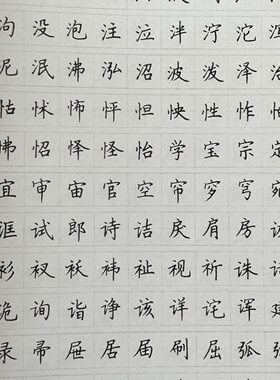 泃 没 泡 注 泣 泮 泞 沱 泻
泥 泯 沸 泓 沼 波 泼 泽 治
怙 怵 怖 怦 怛 怏 性 怍 怡
怫 怊 怿 怪 怡 学 宝 宗 定
宜 审 宙 官 空 帘 穸 穹 宛
诓 试 郎 诗 诘 戾 肩 房
衫 衩 袄 祎 祉 视 祈 诛 诜
诡 询 诣 诤 该 详 诧 诨 建
录 帚 屉 居 届 刷 屈 弧 弥